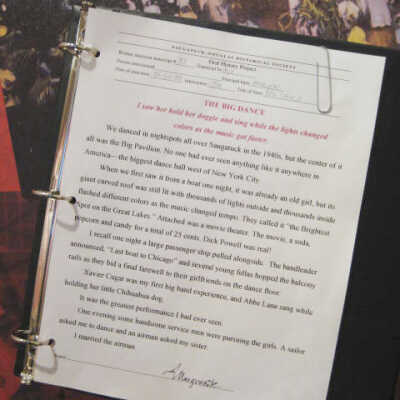 SAUGATUCK-DOUGLAS HISTORICAL SOCIETY
Oral History Project
THE BIG DANCE
I saw her hold her doggie and sing while the lights changed
colors as the music got faster.
We danced in nightspots all over Saugatuck in the 1940s, but the center of it
all was the Big Pavilion. No one had ever seen anything like it anywhere in
America— the biggest dance hall west of New York City.
When we first saw it from a boat one night, it was already an old girl, but its
giant curved roof was still lit with thousands of lights outside and thousands inside
flashed different colors as the music changed tempo. They called it "the Brightest
Spot on the Great Lakes." Attached was a movie theater. The movie, a soda,
popcorn and candy for a total of 25 cents. Dick Powell was real!
I recall one night a large passenger ship pulled alongside. The bandleader
announced, "Last boat to Chicago" and several young fellas hopped the balcony
rails as they bid a final farewell to their girlfriends on the dance floor.
Xavier Cugat was my first big band experience, and Abbe Lane sang while
holding her little Chihuahua dog.
It was the greatest performance I had ever seen.
One evening some handsome service men were pursuing the girls. A sailor
asked me to dance and an airman asked my sister.
I married the airman
Marguerite